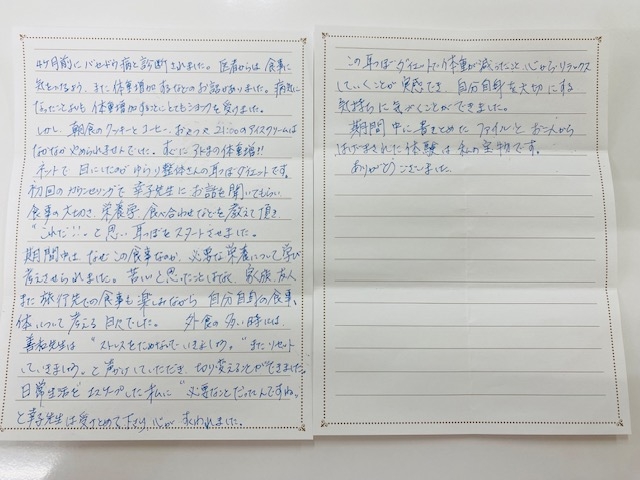 4ヶ月前にバセドウ病と診断されました。医者からは食事に
気をつけるよう、また体重増加するなどのお話がありました。病気に
なったことよりも体重増加するということにとてもショックを受けました。
しかし、朝食のクッキーとコーヒー、おやつ、21:00のアイスクリームは
なかなかやめられませんでした。すぐに 体重増!!
ネットで目にしたのがゆらり整体さんの耳つぼダイエットです。
初回のカウンセリングで幸子先生にお話を聞いてもらい
食事の大切さ、栄養学、食べ合わせなどを教えて頂き
"これだ!!"と思い耳つぼをスタートさせました。
期間中はなぜこの食事なのか、必要な栄養について学び
考えさせられました。苦しいと思ったことはなく、家族、友人
また旅行先での食事も楽しみながら自分自身の食事、
体について考える日々でした。外食の多い時には、
先生は"ストレスをためないでいきましょう。""またリセット
していきましょう。"と声かけていただき、切り変えることができました。
日常生活をエスケープした私に"必要なことだったんですね"
と幸子先生は受けとめて下さり、心が救われました。
この耳つぼダイエットで体重が減ったこと、心からリラックス
していくことが実感でき、自分自身を大切にする
気持ちに気づくことができました。
期間中に書きとめたファイルと お二人から
はげまされた体験は私の宝物です。
ありがとうございました。